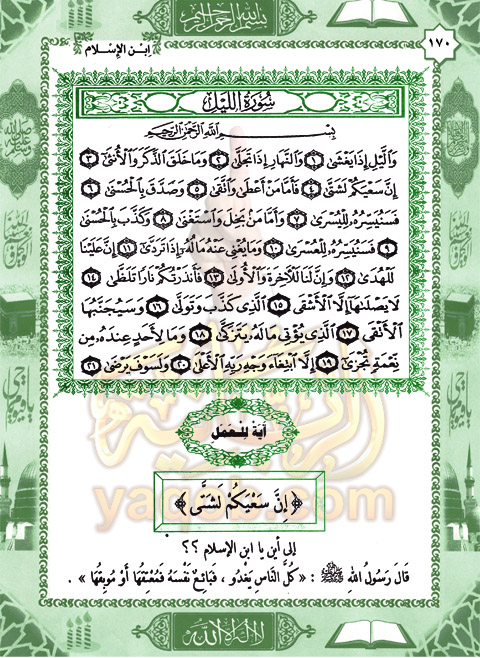 بسم الله الرحمن الرحيم
ابن الإسلام
١٧٠
سُورَةُ اللَّيْلِ
بِسْمِ اللَّهِ الرَّحْمَٰنِ الرَّحِيمِ
وَاللَّيْلِ إِذَا يَغْشَىٰ ١ وَالنَّهَارِ إِذَا تَجَلَّىٰ ٢ وَمَا خَلَقَ الذَّكَرَ وَالْأُنثَىٰ ٣
إِنَّ سَعْيَكُمْ لَشَتَّىٰ ٤ فَأَمَّا مَنْ أَعْطَىٰ وَاتَّقَىٰ ٥ وَصَدَّقَ بِالْحُسْنَىٰ ٦
فَسَنُيَسِّرُهُ لِلْيُسْرَىٰ ٧ وَأَمَّا مَنْ بَخِلَ وَاسْتَغْنَىٰ ٨ وَكَذَّبَ بِالْحُسْنَىٰ
٩ فَسَنُيَسِّرُهُ لِلْعُسْرَىٰ ١٠ وَمَا يُغْنِي عَنْهُ مَالُهُ إِذَا تَرَدَّىٰ ١١ إِنَّ عَلَيْنَا
لَلْهُدَىٰ ١٢ وَإِنَّ لَنَا لَلْآخِرَةَ وَالْأُولَىٰ ١٣ فَأَنذَرْتُكُمْ نَارًا تَلَظَّىٰ ١٤
لَا يَصْلَاهَا إِلَّا الْأَشْقَى ١٥ الَّذِي كَذَّبَ وَتَوَلَّىٰ ١٦ وَسَيُجَنَّبُهَا
الْأَتْقَى ١٧ الَّذِي يُؤْتِي مَالَهُ يَتَزَكَّىٰ ١٨ وَمَا لِأَحَدٍ عِندَهُ مِن
نِّعْمَةٍ تُجْزَىٰ ١٩ إِلَّا ابْتِغَاءَ وَجْهِ رَبِّهِ الْأَعْلَىٰ ٢٠ وَلَسَوْفَ يَرْضَىٰ ٢١
آيَةٌ لِلْعَمَلِ
﴿ إِنَّ سَعْيَكُمْ لَشَتَّى ﴾
yaqob.com
إلى أين يا ابن الإسلام ؟؟
قَالَ رَسُولُ اللهِ ﷺ : « كُلُّ النَّاسِ يَغْدُو ، فَبَائِعٌ نَفْسَهُ فَمُعْتِقُهَا أَوْ مُوبِقُهَا » .
لا إله إلا الله